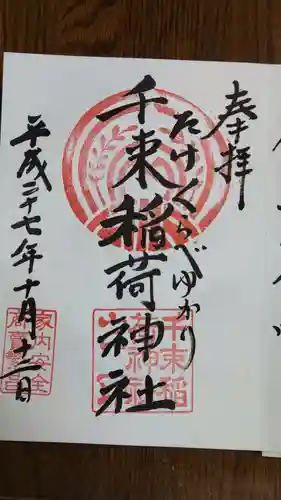 奉拝
たけくらべゆかり
千束稲荷神社
平成二十七年十月十二日
千束稲荷神社
家内安全
商売繁昌